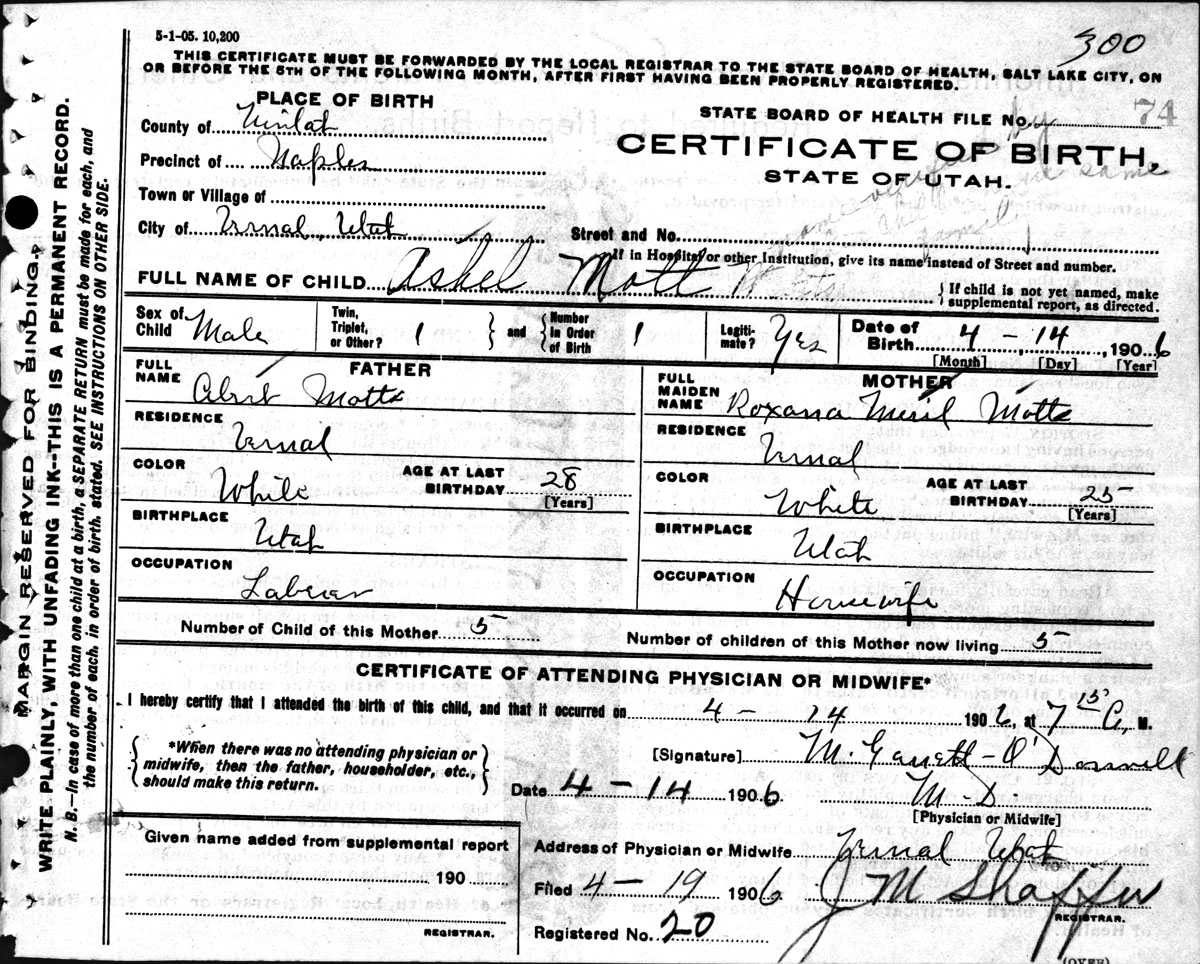 5-1-05. 10,200
300
THIS CERTIFICATE MUST BE FORWARDED BY THE LOCAL REGISTRAR TO THE STATE BOARD OF HEALTH, SALT LAKE CITY, ON
OR BEFORE THE 5TH OF THE FOLLOWING MONTH, AFTER FIRST HAVING BEEN PROPERLY REGISTERED.
PLACE OF BIRTH
STATE BOARD OF HEALTH FILE No. 74
County of Uintah
CERTIFICATE OF BIRTH,
Precinct of Naples
STATE OF UTAH.
Town or Village of
City of Vernal, Utah
Street and No.
If in Hospital or other Institution, give its name instead of Street and number.
name by
in same
family
FULL NAME OF CHILD Ashel Mott
{If child is not yet named, make
supplemental report, as directed.
Sex of Child Male
Twin, Triplet, or Other? 1 } and { Number in Order of Birth 1
Legitimate? Yes
Date of Birth 4 - 14, 1906
[Month] [Day] [Year]
FATHER
FULL NAME Albert Motts
RESIDENCE
Vernal
COLOR
White
AGE AT LAST BIRTHDAY 28
[Years]
BIRTHPLACE
Utah
OCCUPATION
Laborer
MOTHER
FULL MAIDEN NAME Roxana Motts
RESIDENCE
Vernal
COLOR
White
AGE AT LAST BIRTHDAY 25
[Years]
BIRTHPLACE
Utah
OCCUPATION
Housewife
Number of Child of this Mother 5
Number of children of this Mother now living 5
CERTIFICATE OF ATTENDING PHYSICIAN OR MIDWIFE*
I hereby certify that I attended the birth of this child, and that it occurred on 4 - 14 1906, at 7 15 A, M.
{*When there was no attending physician or
midwife, then the father, householder, etc.,
should make this return.}
[Signature] M. Garrett-O'Donnell
Date 4 - 14 1906
M.D.
[Physician or Midwife]
Given name added from supplemental report
190
REGISTRAR.
Address of Physician or Midwife Vernal Utah
Filed 4 - 19 1906
J M Shaffer
REGISTRAR.
Registered No. 20
(OVER)
MARGIN RESERVED FOR BINDING.
WRITE PLAINLY, WITH UNFADING INK--THIS IS A PERMANENT RECORD.
N. B.--In case of more than one child at a birth, a SEPARATE RETURN must be made for each, and
the number of each, in order of birth, stated. SEE INSTRUCTIONS ON OTHER SIDE.